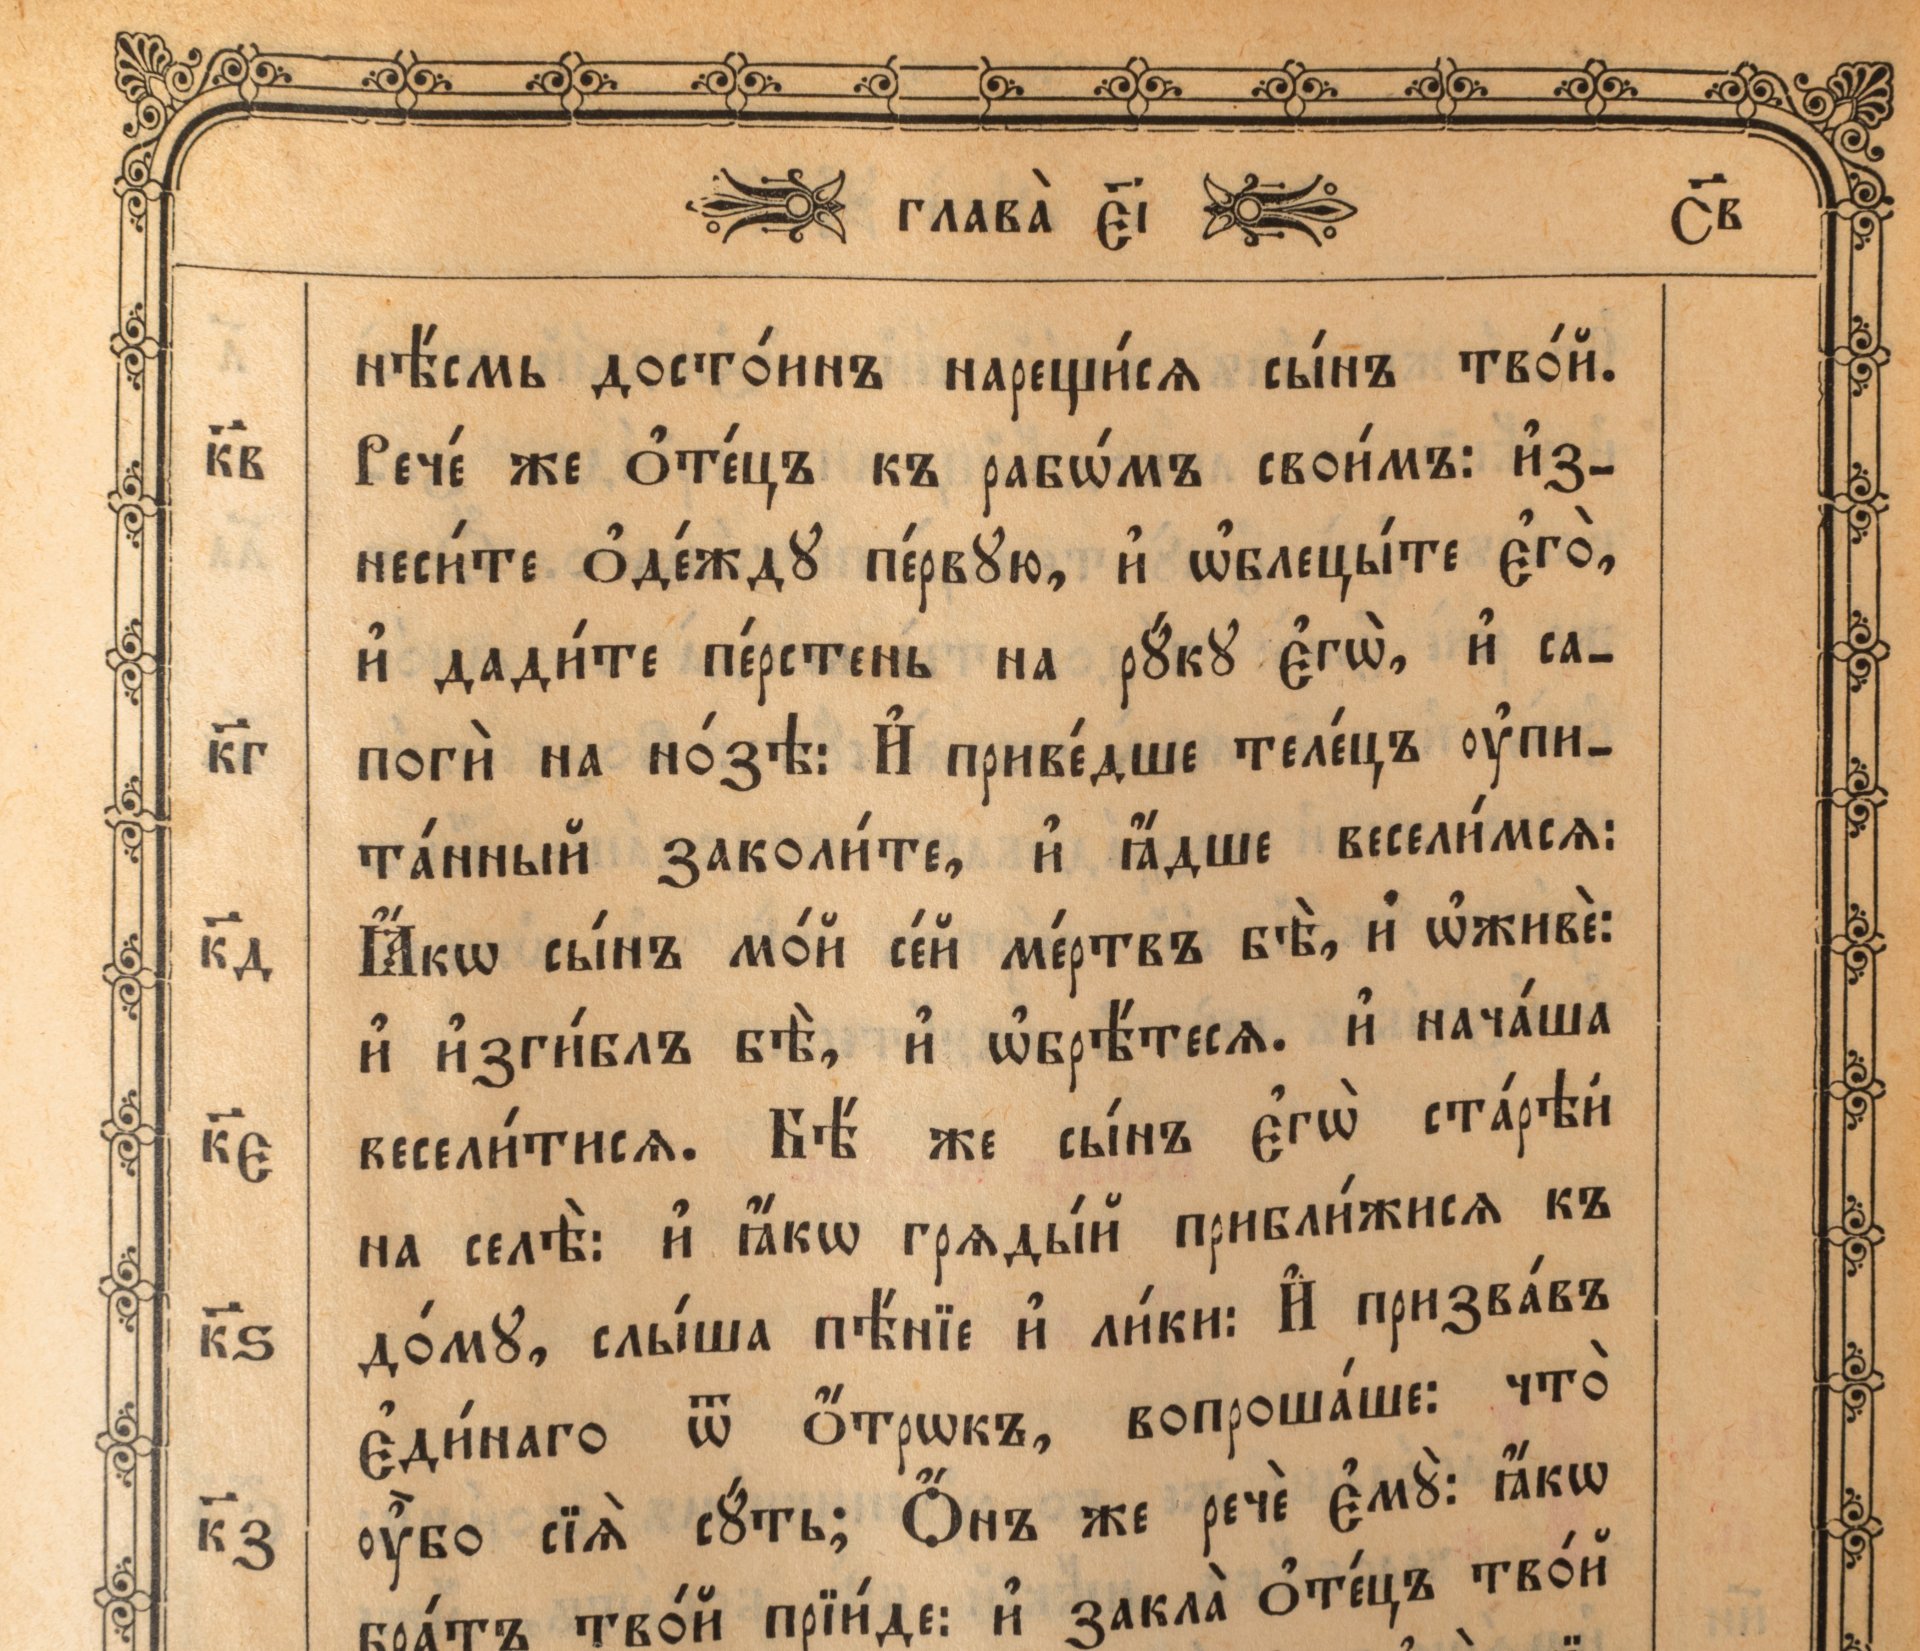 глава̀ є҃і
с҃в
нѣ́смь досто́инъ нарещи́сѧ сы́нъ тво́й.
к҃в
Рече́ же ѻ҆те́цъ къ рабѡ́мъ свои́мъ: и҆з-
неси́те ѻ҆де́ждꙋ пе́рвꙋю, и҆ ѡ҆блецы́те є҆го̀,
и҆ дади́те пе́рстень на рꙋ́кꙋ є҆гѡ̀, и҆ са-
к҃г
поги̑ на но́зѣ: И҆ приве́дше теле́цъ ᲂу҆пи-
та́нный заколи́те, и҆ ꙗ҆́дше весели́мсѧ:
к҃д
Ꙗ҆́кѡ сы́нъ мо́й се́й ме́ртвъ бѣ̀, и҆ ѡ҆живѐ:
и҆ и҆зги́блъ бѣ̀, и҆ ѡ҆брѣ́тесѧ. и҆ нача́ша
к҃є
весели́тисѧ. Бѣ́ же сы́нъ є҆гѡ̀ ста́рѣй
на селѣ̀: и҆ ꙗ҆́кѡ грѧды́й прибли́жисѧ къ
к҃ѕ
до́мꙋ, слы́ша пѣ́нїе и҆ ли́ки: И҆ призва́въ
є҆ди́наго ѿ ѻ҆́трѡкъ, вопроша́ше: что̀
к҃з
ᲂу҆̀бо сїѧ̀ сꙋ́ть; Ѻ҆́нъ же речѐ є҆мꙋ̀: ꙗ҆́кѡ
бра́тъ тво́й прїи́де: и҆ закла̀ ѻ҆те́цъ тво́й